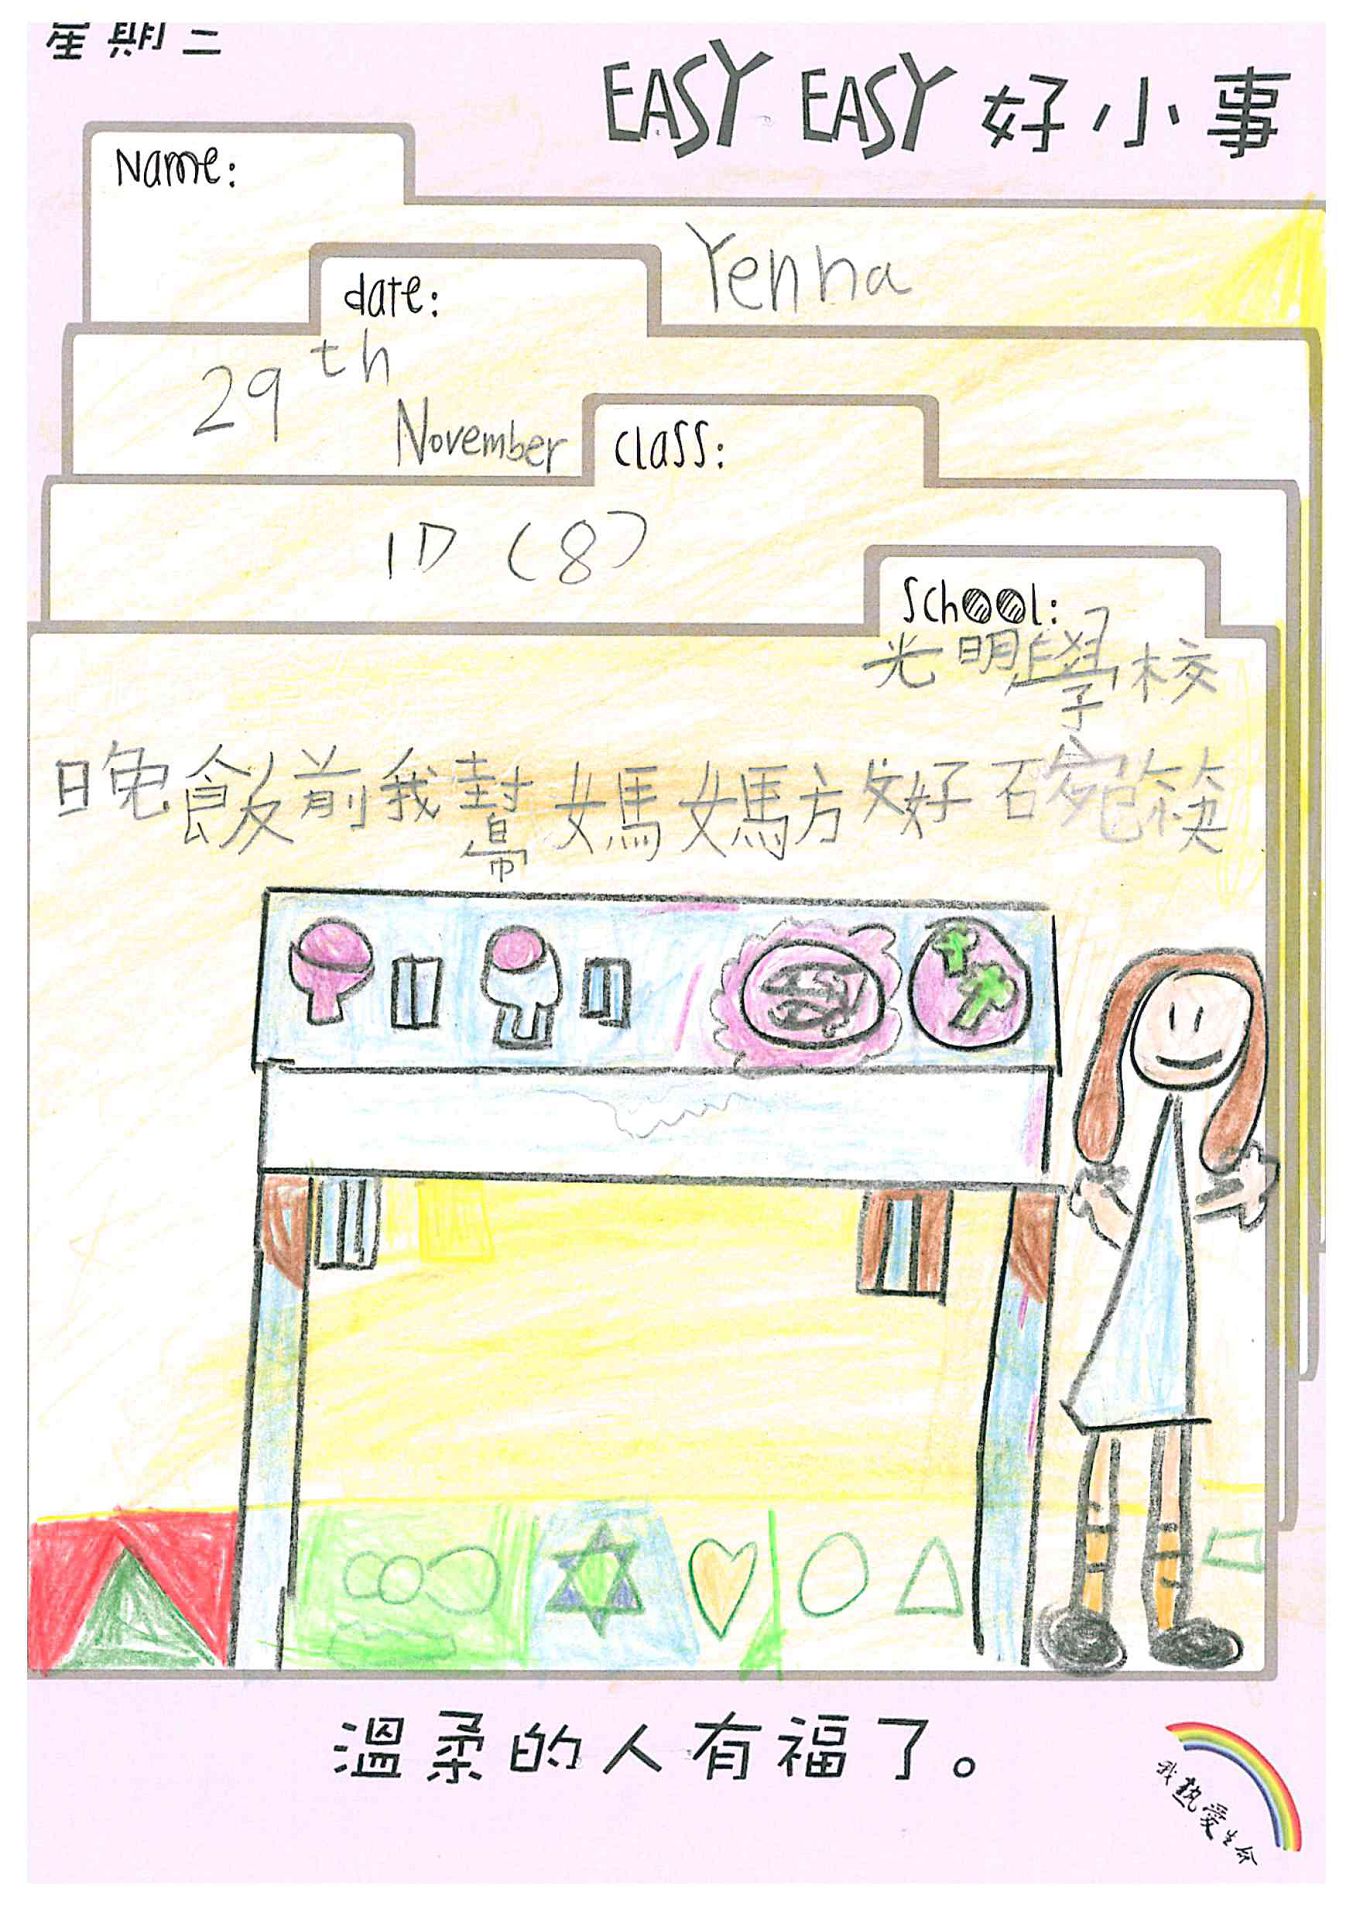 星期二
EASY EASY 好小事
Name:
Yenna
date:
29th
November
class:
1D (8)
School:
光明學校
晚飯前我幫媽媽放好碗筷
溫柔的人有福了。
我熱愛生命